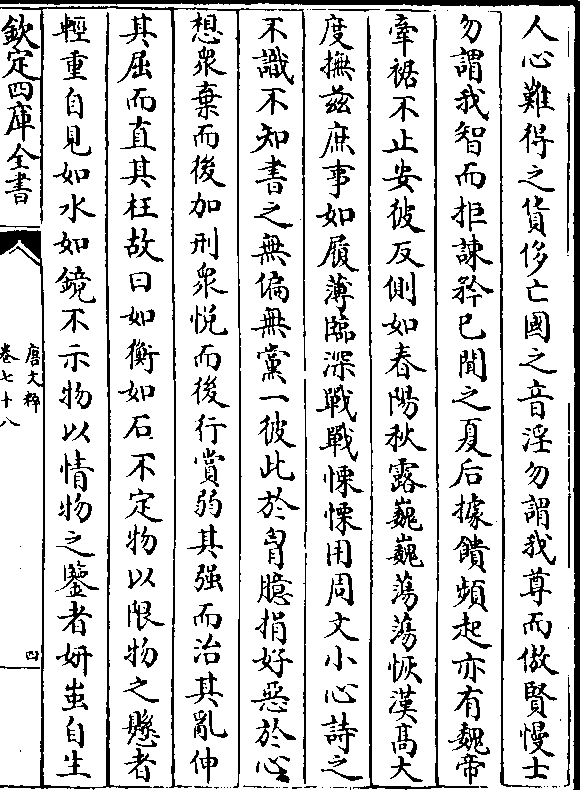 人心難得之貨侈亡國之音淫勿謂我尊而傲賢慢士
勿謂我智而拒諫矜已聞之夏后據饋頻起亦有魏帝
牽裾不止安彼反側如春陽秋露巍巍蕩蕩恢漢髙大
度撫兹庶事如履薄臨深戰戰慄慄用周文小心詩之
不識不知書之無偏無黨一彼此於胷臆捐好惡於心
想衆棄而後加刑衆悦而後行賞弱其强而治其亂伸
其屈而直其枉故曰如衡如石不定物以限物之懸者
輕重自見如水如鏡不示物以情物之鑒者妍蚩自生
欽定四庫全書
唐文粹
卷七十八
四